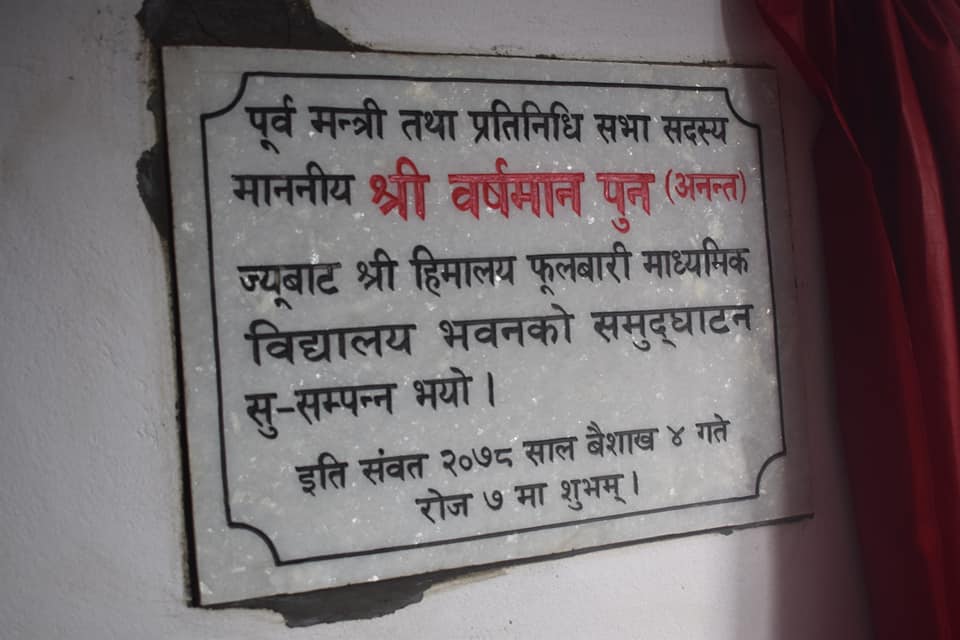 पूर्व मन्त्री तथा प्रतिनिधि सभा सदस्य
माननीय श्री वर्षमान पुन (अनन्त)
ज्यूबाट श्री हिमालय फूलबारी माध्यमिक
विद्यालय भवनको समुद्घाटन
सु-सम्पन्न भयो ।
इति संवत २०७८ साल बैशाख ४ गते
रोज ७ मा शुभम् ।